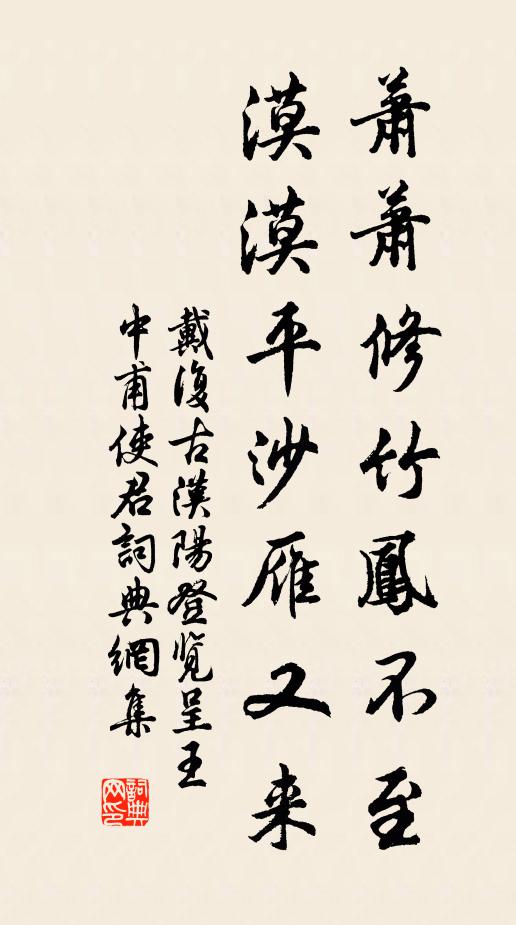 蕭蕭修竹鳳不至
漠漠平沙雁又来
戴復古漢陽登覽呈王
中甫使君詞典網集
詞典网印